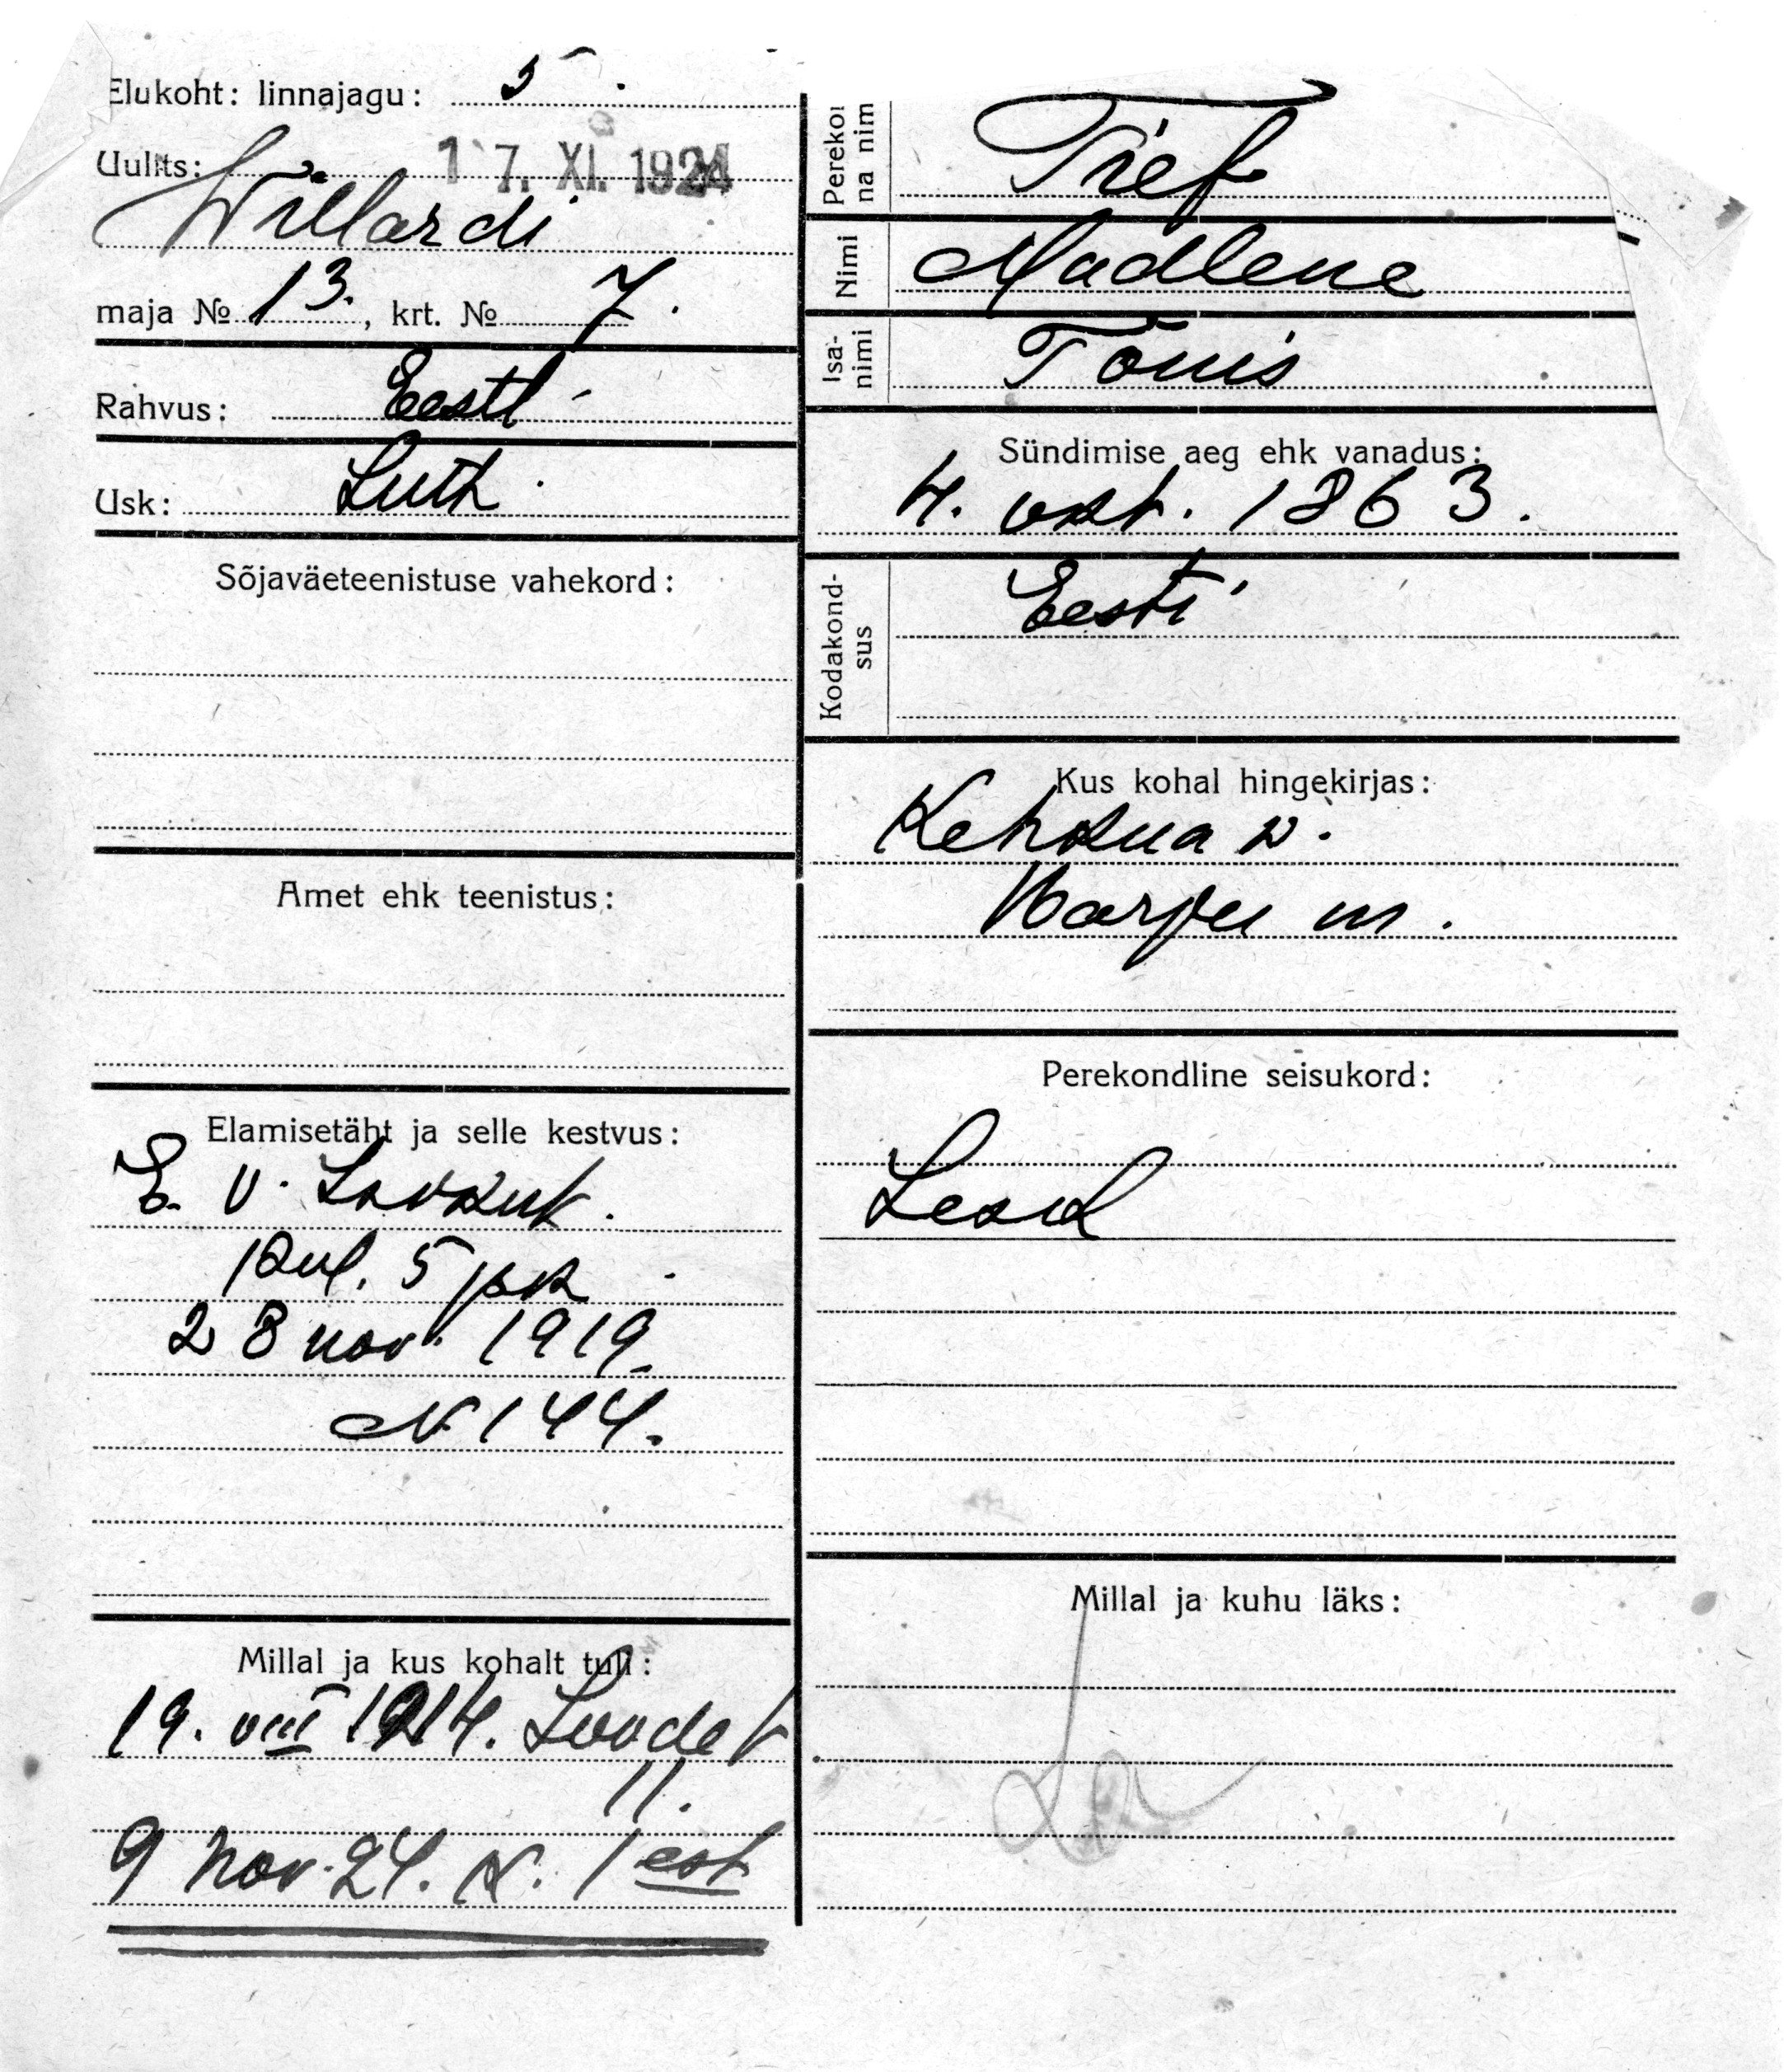 Elukoht: linnajagu: 5.
Uulits: 17. XI. 1924
Willardi
maja № 13., krt. № 7.
Rahvus: Eesti
Usk: Luth.
Sõjaväeteenistuse vahekord:
Amet ehk teenistus:
Elamisetäht ja selle kestvus:
E. V.
5 jsk
28 nov. 1919.
N 144.
Millal ja kus kohalt tuli:
19. VIII 1914.
11.
9 nov. 24. N. 1 est
Perekon
na nim
Tief
Nimi
Madlene
Isa-
nimi
Tõnis
Sündimise aeg ehk vanadus:
4. okt. 1863.
Kodakond-
sus
Eesti
Kus kohal hingekirjas:
Kehkna w.
Harju m.
Perekondline seisukord:
Lesk
Millal ja kuhu läks: